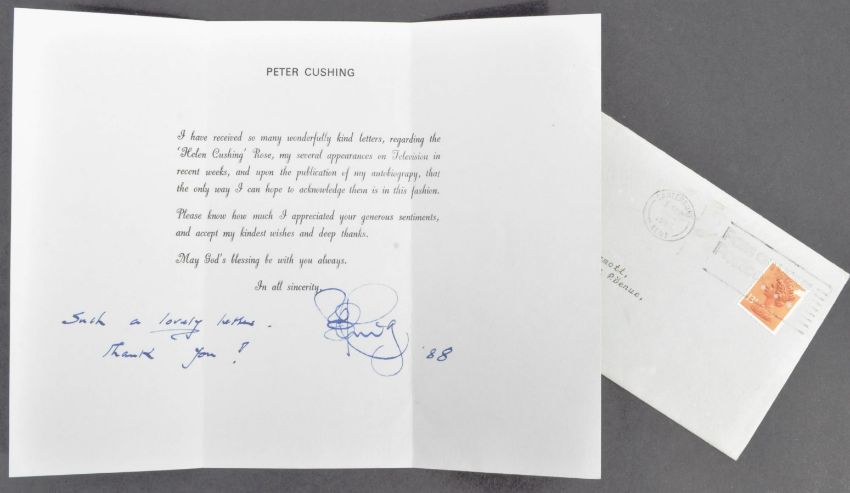 PETER CUSHING
I have received so many wonderfully kind letters, regarding the
'Helen Cushing' Rose, my several appearances on Television in
recent weeks, and upon the publication of my autobiograpy, that
the only way I can hope to acknowledge them is in this fashion.
Please know how much I appreciated your generous sentiments,
and accept my kindest wishes and deep thanks.
May God's blessing be with you always.
In all sincerity,
Such a lovely letter.
Thank you!
'88
CANTERBURY
KENT